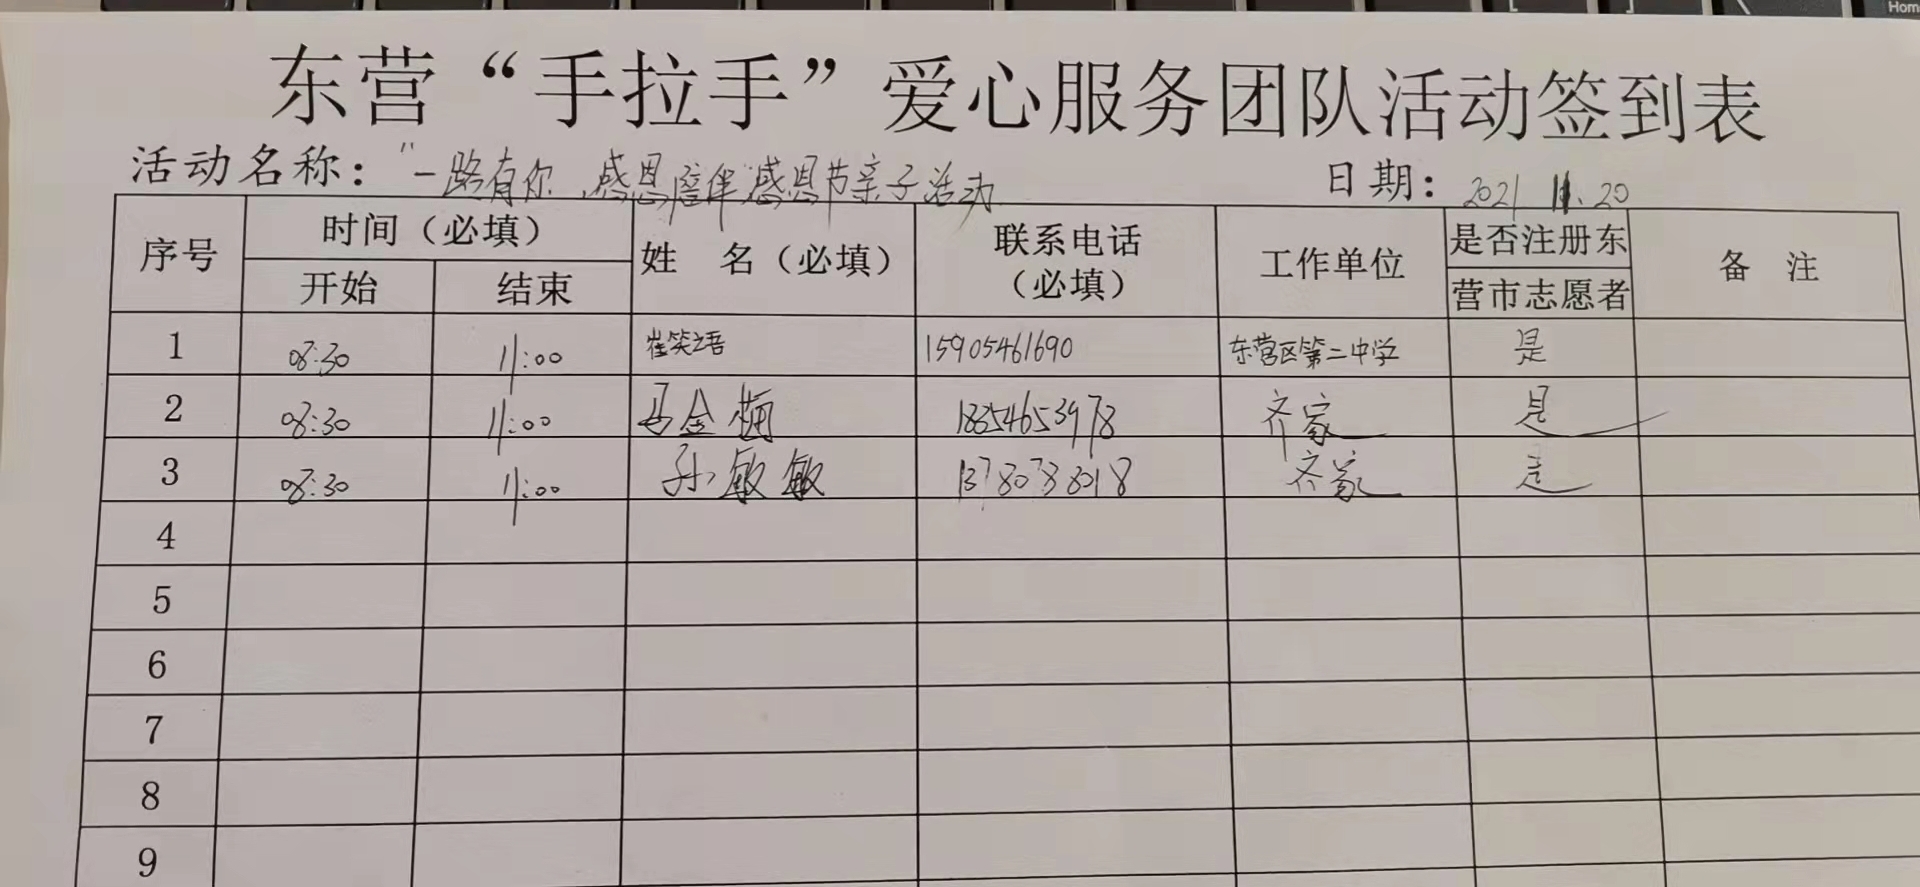 Home
东营“手拉手”爱心服务团队活动签到表
活动名称：“一路有你，感恩陪伴感恩节亲子活动 日期：2021 11.20
序号 时间（必填） 姓 名（必填） 联系电话（必填） 工作单位 是否注册东营市志愿者 备 注
开始 结束
1 08:30 11:00 崔笑语 15905461690 东营区第二中学 是
2 08:30 11:00 马金 18354653978 齐家 是
3 08:30 11:00 孙敏敏 13780788018 齐家 是
4
5
6
7
8
9